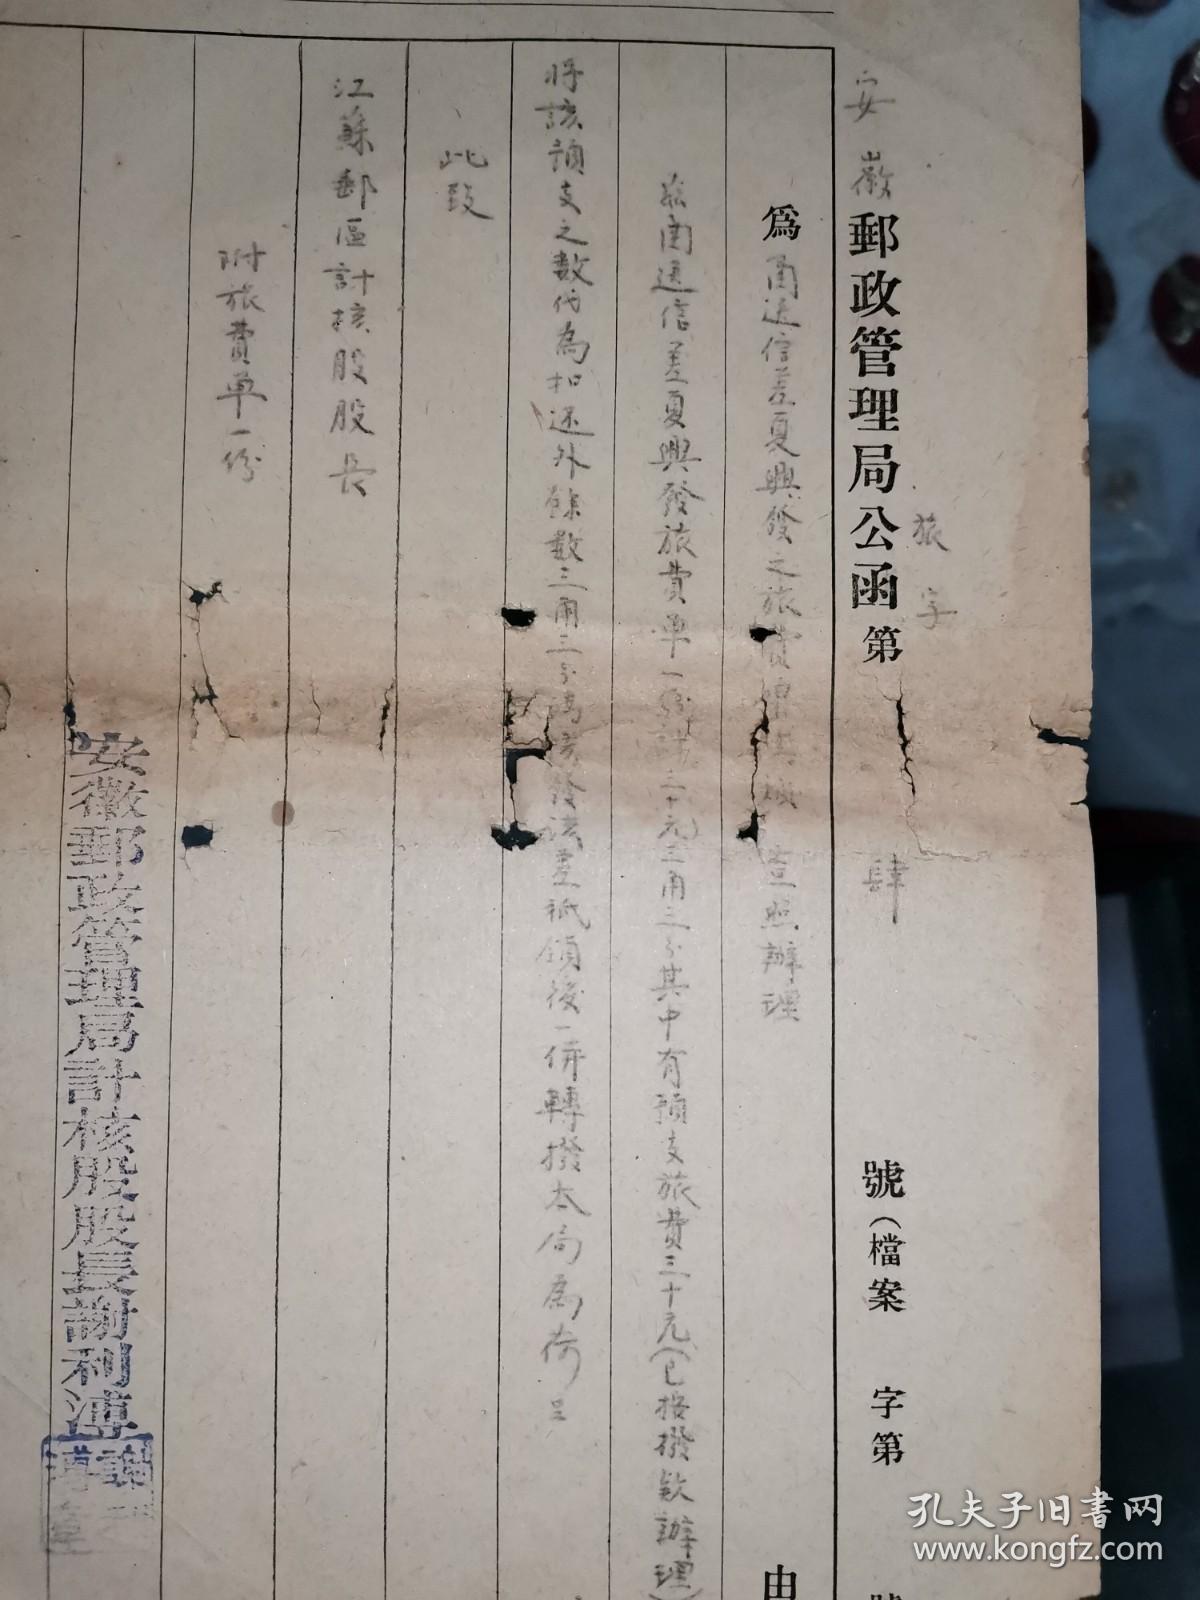 旅字
安徽郵政管理局公函第肆號(檔案 字第 號
為函送信差夏興發之旅費單 查照辦理 由
茲函送信差夏興發旅費單一份計三十元三角三分其中有預支旅費三十元(已按撥款辦理)
將該預支之數代為扣還外餘數三角三分 發該差祇領後一併轉撥本局為荷
此致
江蘇郵區計核股股長
附旅費單一份
安徽郵政管理局計核股股長謝利溥
孔夫子旧书网
www.kongfz.com